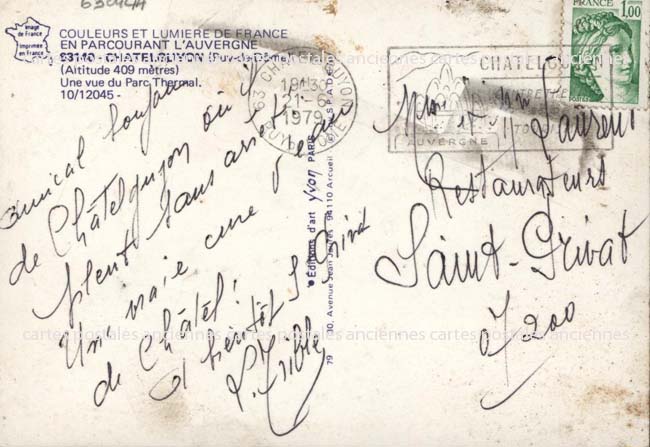 63CHLA
Image de France
Imprimée en France
COULEURS ET LUMIERE DE FRANCE
EN PARCOURANT L'AUVERGNE
63140 - CHATELGUYON (Puy-de-Dôme)
(Altitude 409 mètres)
Une vue du Parc Thermal.
10/12045 -
amical bonjour
de Châtelguyon où il
pleut sans arrêt.
Un' vraie cure d'eau
de Châtel!
A bientôt St Privat
Editions d'art yvon PARIS
30, Avenue Jean Jaurès - 94110 Arcueil
79
63 CHATELGUYON
19H30
21-9
1979
PUY DE DOME
CHATELGUYON
AUVERGNE
FRANCE
1,00
POSTES
et Mme Laurent
Restaurateurs
Saint-Privat
07200
cartes postales anciennes cartes postales anciennes cartes postales anciennes